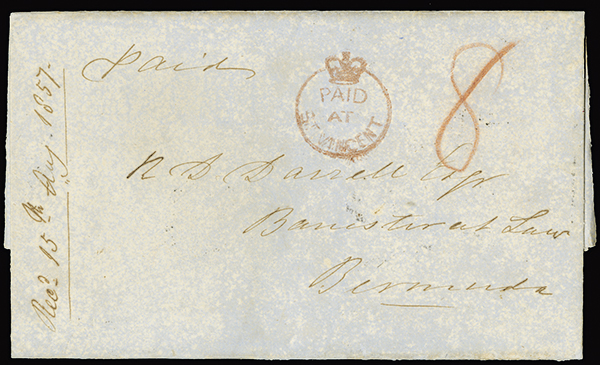 Paid
PAID
AT
ST VINCENT
8
R D Darrell Esqr
Barrister at Law
Bermuda
Recd 15th Aug. 1857.